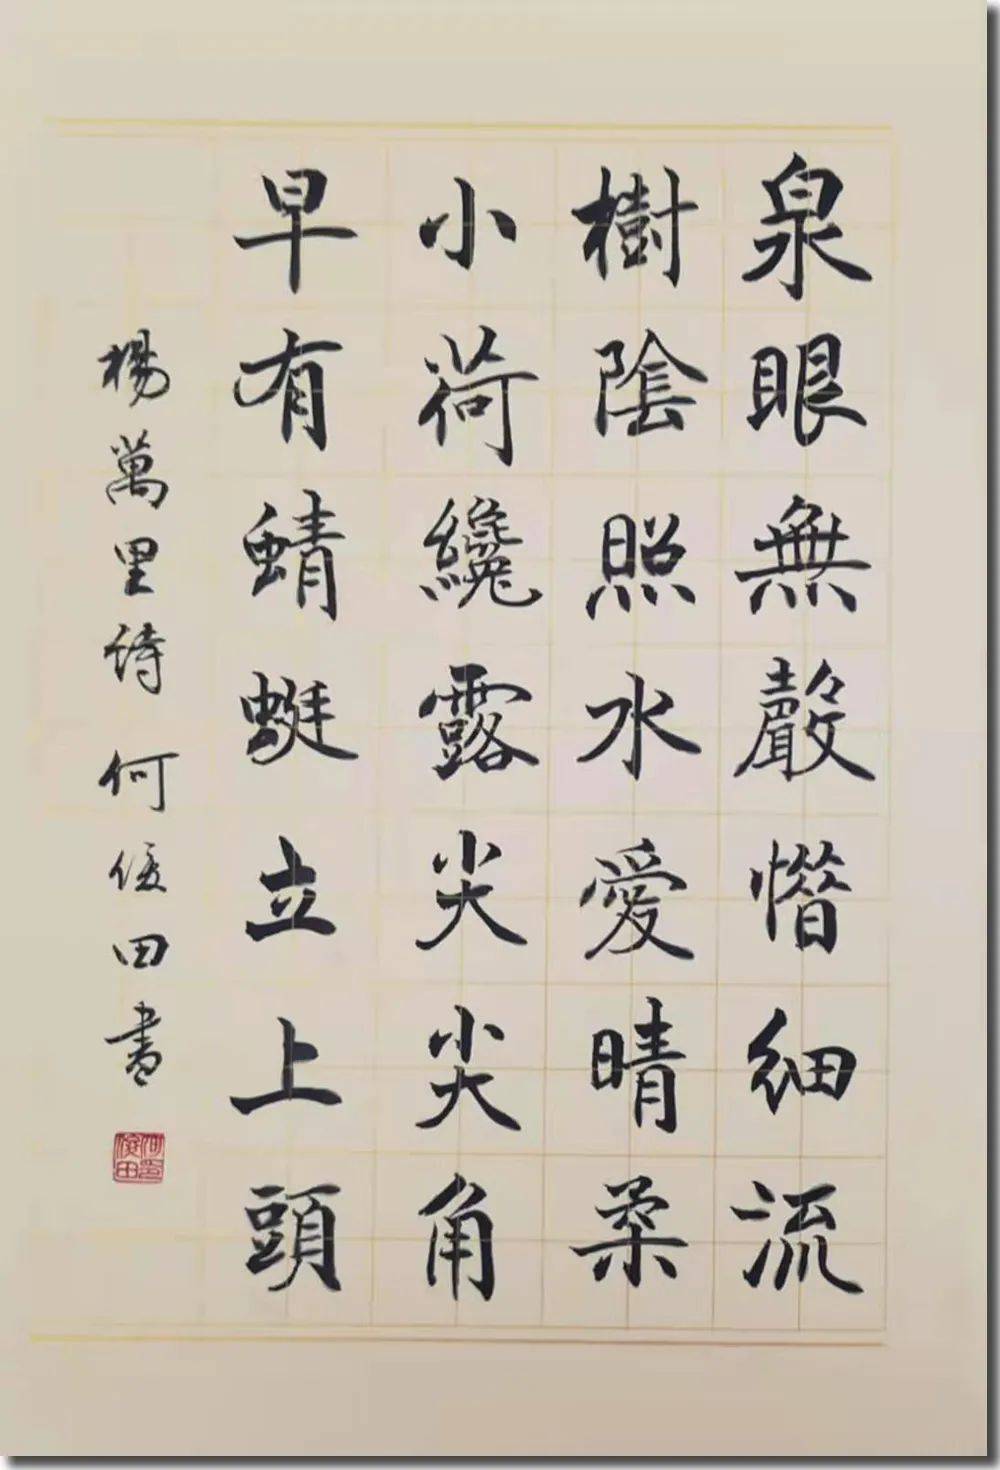 泉眼無聲惜細流
樹陰照水愛晴柔
小荷纔露尖尖角
早有蜻蜓立上頭
楊萬里詩 何俊田書